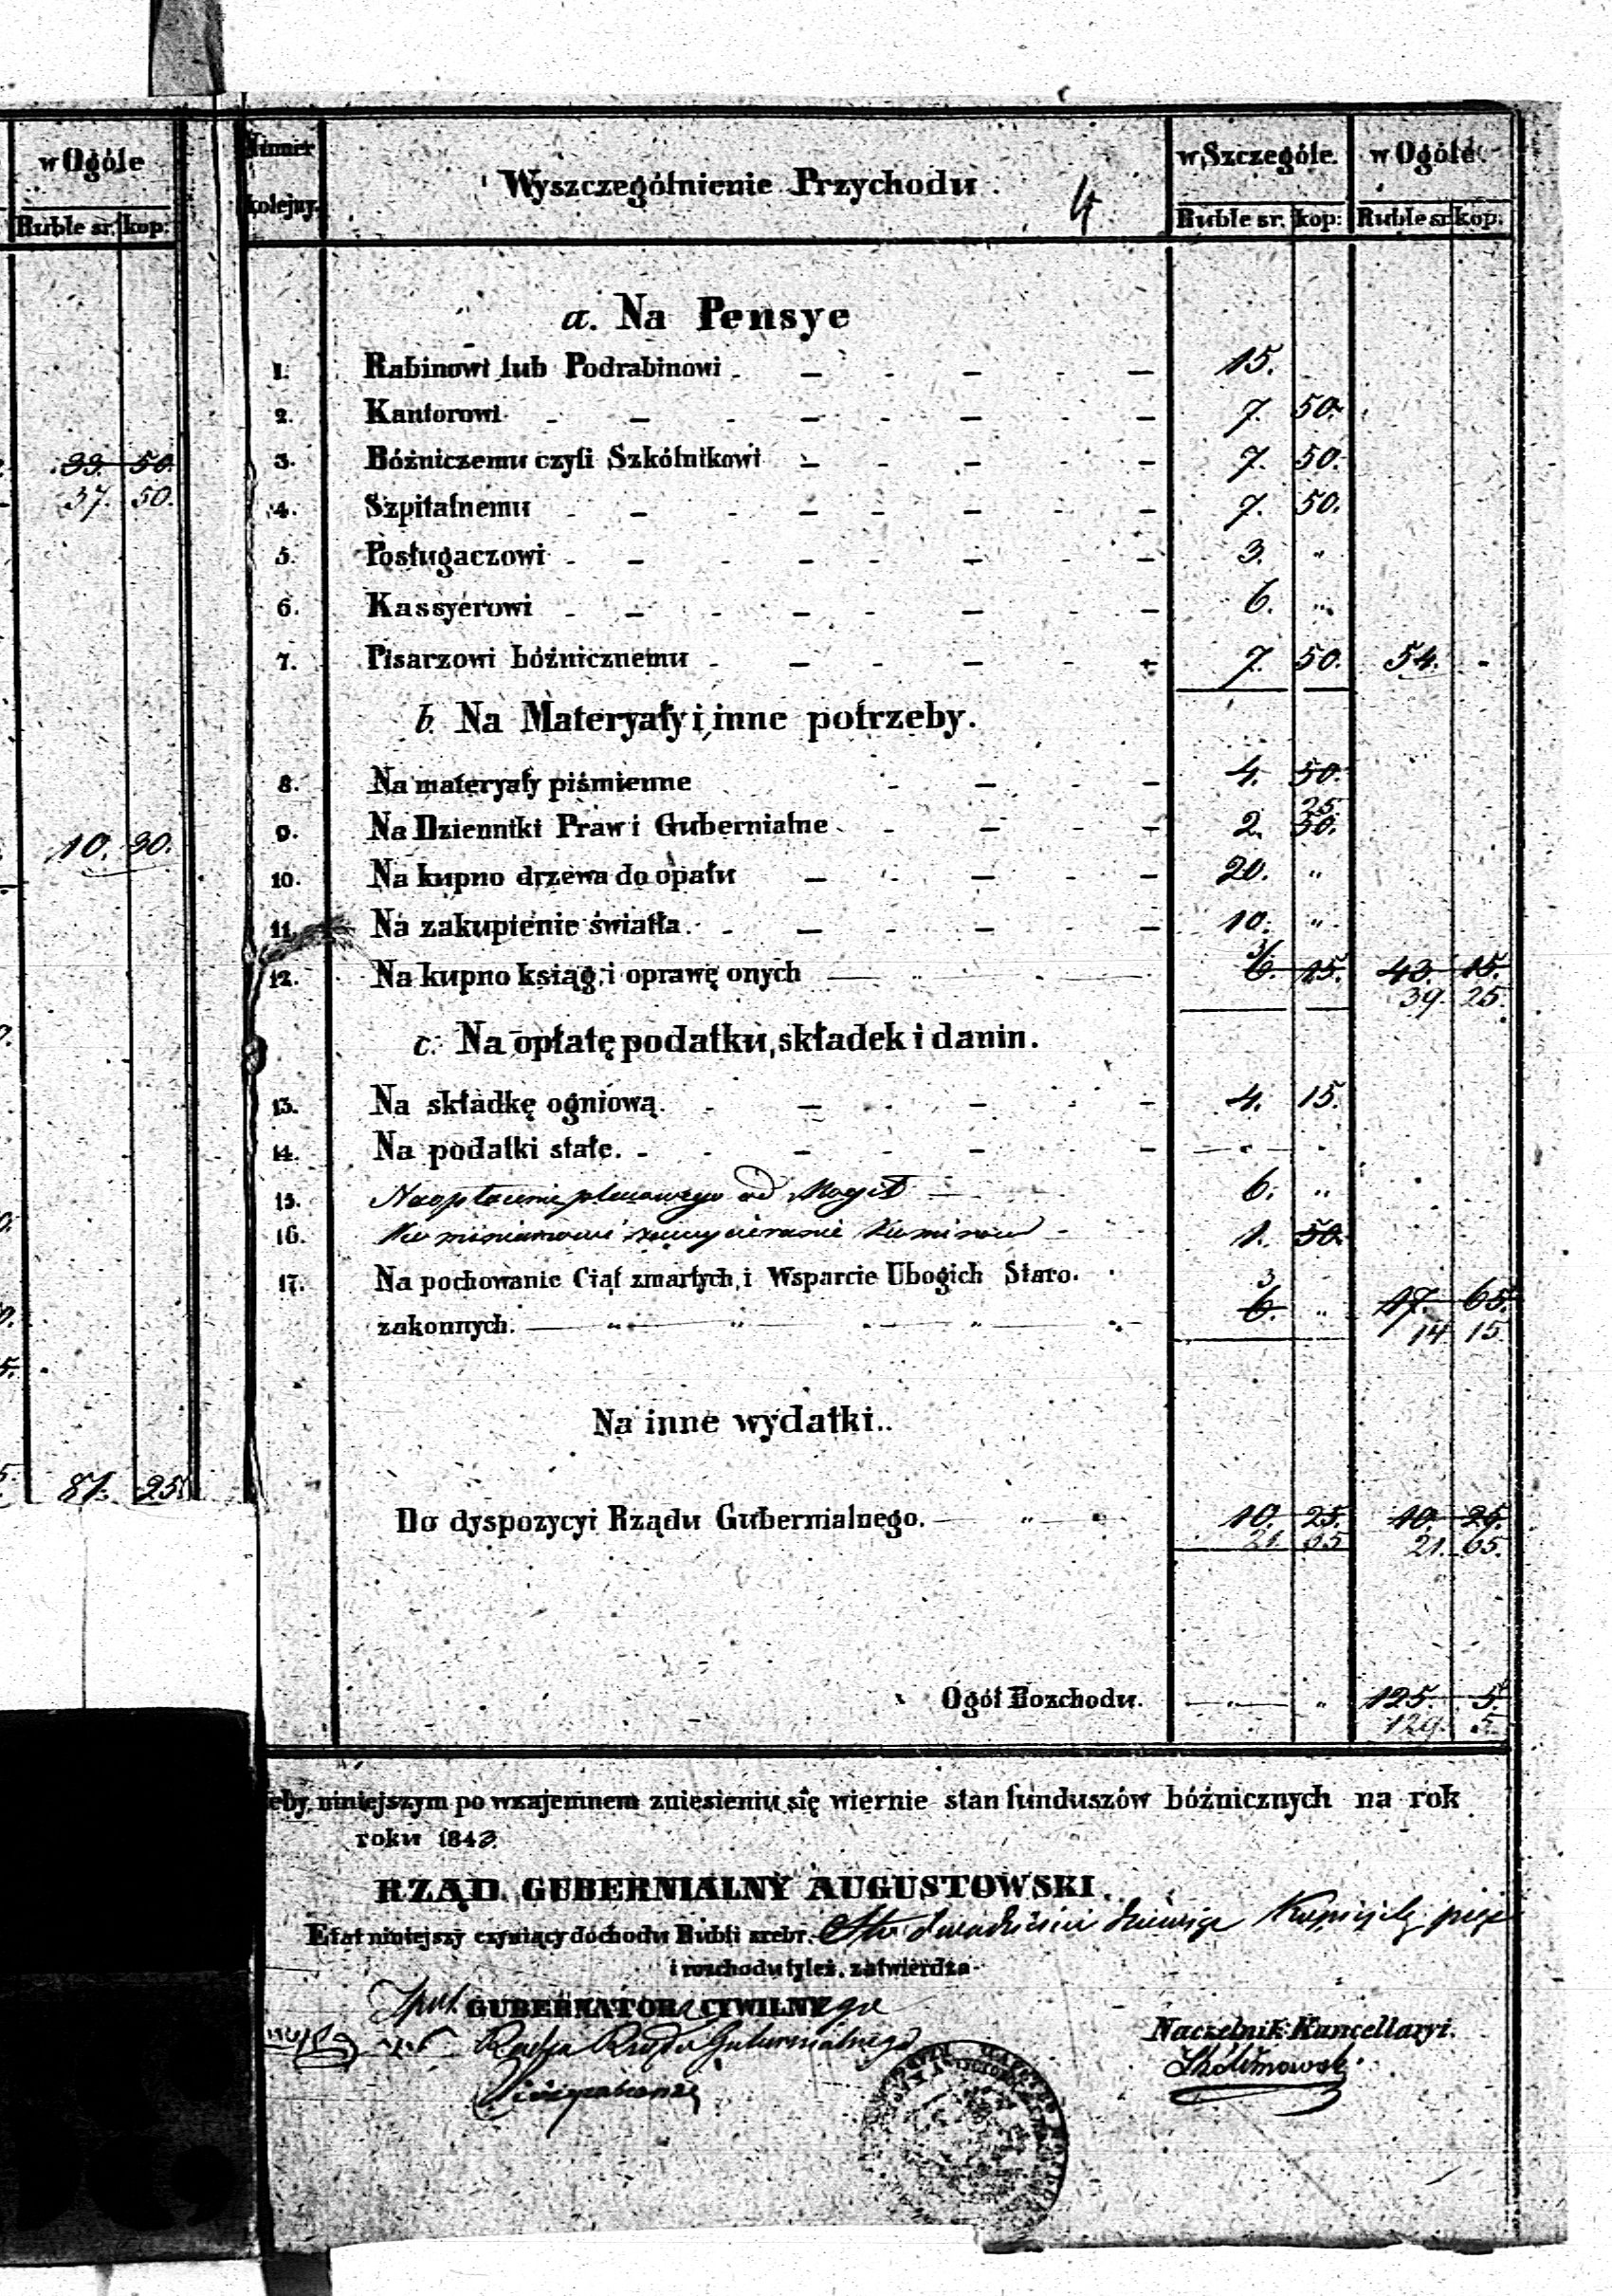 w Ogóle
Ruble sr. kop:
33. 50.
37. 50.
10. 90.
87. 25.
Numer kolejny. Wyszczególnienie Przychodu. 4 w Szczególe. w Ogóle
Ruble sr. kop: Ruble sr. kop.
a. Na Pensye
1. Rabinowi lub Podrabinowi 15.
2. Kantorowi 7. 50.
3. Bóżniczemu czyli Szkólnikowi 7. 50.
4. Szpitalnemu 7. 50.
5. Posługaczowi 3. "
6. Kassyerowi 6. "
7. Pisarzowi bóżnicznemu 7. 50. 54. -
b. Na Materyały i inne potrzeby.
8. Na materyały piśmienne 4. 50.
25
9. Na Dzienniki Praw i Gubernialne 2. 50.
10. Na kupno drzewa do opału 20. "
11. Na zakupienie światła 10. "
12. Na kupno ksiąg i oprawę onych 6 15. 43. 15.
39. 25.
c. Na opłatę podatku, składek i danin.
13. Na składkę ogniową. 4. 15.
14. Na podatki stałe.
15. Na opłacenie od Mogił 6. "
16. 1. 50.
17. Na pochowanie Ciał zmarłych, i Wsparcie Ubogich Staro.
3
zakonnych. 6. " 17. 65.
14. 15.
Na inne wydatki..
Do dyspozycyi Rządu Gubernialnego. 10. 25. 10. 25.
21. 65 21. 65.
Ogół Rozchodu. " 125. 5.
129. 5.
niniejszym po wzajemnem zniesieniu się wiernie stan funduszów bóżnicznych na rok
roku 1843.
RZĄD GUBERNIALNY AUGUSTOWSKI.
Etat niniejszy czyniący dochodu Rubli srebr. Sto dwadzieścia dziewięć Kopiejek pięć
i rozchodu tyleż, zatwierdza
GUBERNATOR CYWILNY
Radca Rządu Gubernialnego
Naczelnik Kancellaryi.